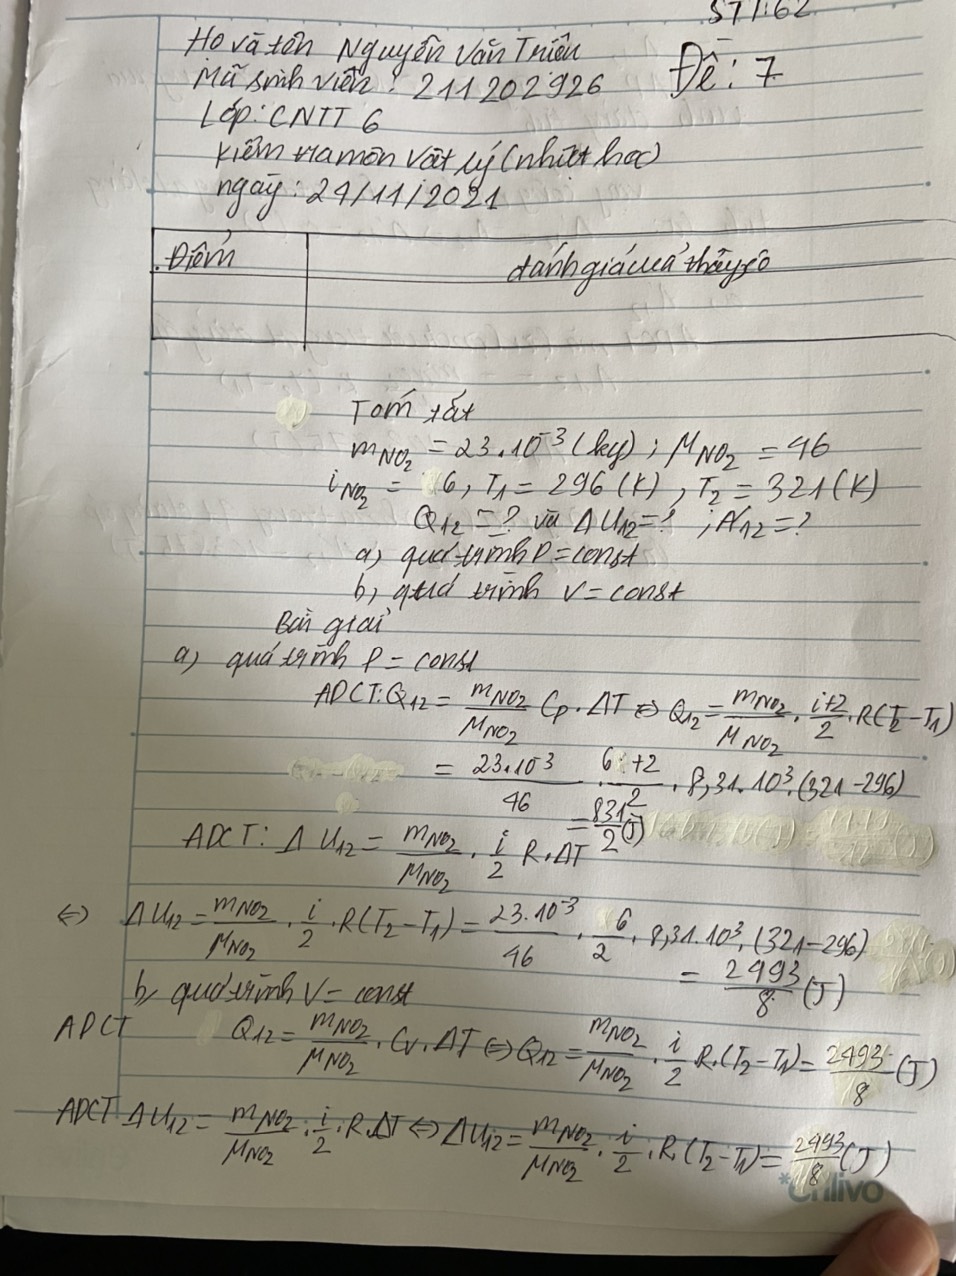 STT:62
Họ và tên Nguyễn Văn Triều
Đề: 7
Mã sinh viên: 211202926
Lớp: CNTT 6
Kiểm tra môn Vật lý (nhiệt học)
ngày: 24/11/2021
Điểm
đánh giá của thầy cô
Tóm tắt
m_NO₂ = 23.10⁻³ (kg); μ_NO₂ = 46
i_NO₂ = 6, T₁ = 296 (K), T₂ = 321 (K)
Q₁₂ = ? và ΔU₁₂ = ?; A'₁₂ = ?
a, quá trình P = const
b, quá trình V = const
Bài giải
a) quá trình P = const
ADCT: Q₁₂ = m_NO₂/μ_NO₂ Cp . ΔT ⇔ Q₁₂ = m_NO₂/μ_NO₂ . i+2/2 . R(T₂ - T₁)
= 23.10⁻³/46 . 6+2/2 . 8,31.10³.(321-296)
= 831/2 (J)
ADCT: ΔU₁₂ = m_NO₂/μ_NO₂ . i/2 R.ΔT
⇔ ΔU₁₂ = m_NO₂/μ_NO₂ . i/2 . R(T₂ - T₁) = 23.10⁻³/46 . 6/2 . 8,31.10³.(321-296)
= 2493/8 (J)
b, quá trình V = const
ADCT Q₁₂ = m_NO₂/μ_NO₂ . Cv . ΔT ⇔ Q₁₂ = m_NO₂/μ_NO₂ . i/2 R.(T₂ - T₁) = 2493/8 (J)
ADCT ΔU₁₂ = m_NO₂/μ_NO₂ . i/2 . R.ΔT ⇔ ΔU₁₂ = m_NO₂/μ_NO₂ . i/2 . R.(T₂ - T₁) = 2493/8 (J)